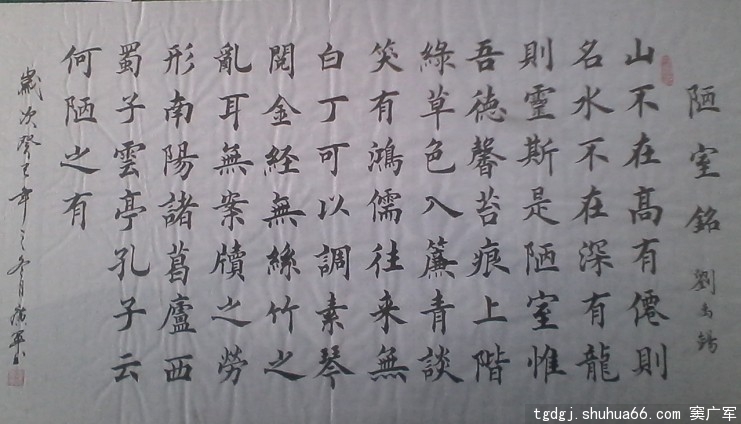 陋室銘 劉禹錫
山不在高有僊則
名水不在深有龍
則靈斯是陋室惟
吾德馨苔痕上階
綠草色入簾青談
笑有鴻儒往来無
白丁可以調素琴
閱金経無絲竹之
亂耳無案牘之勞
形南陽諸葛廬西
蜀子雲亭孔子云
何陋之有
歲次癸巳年之冬月廣軍
tgdgj.shuhua66.com 窦广军